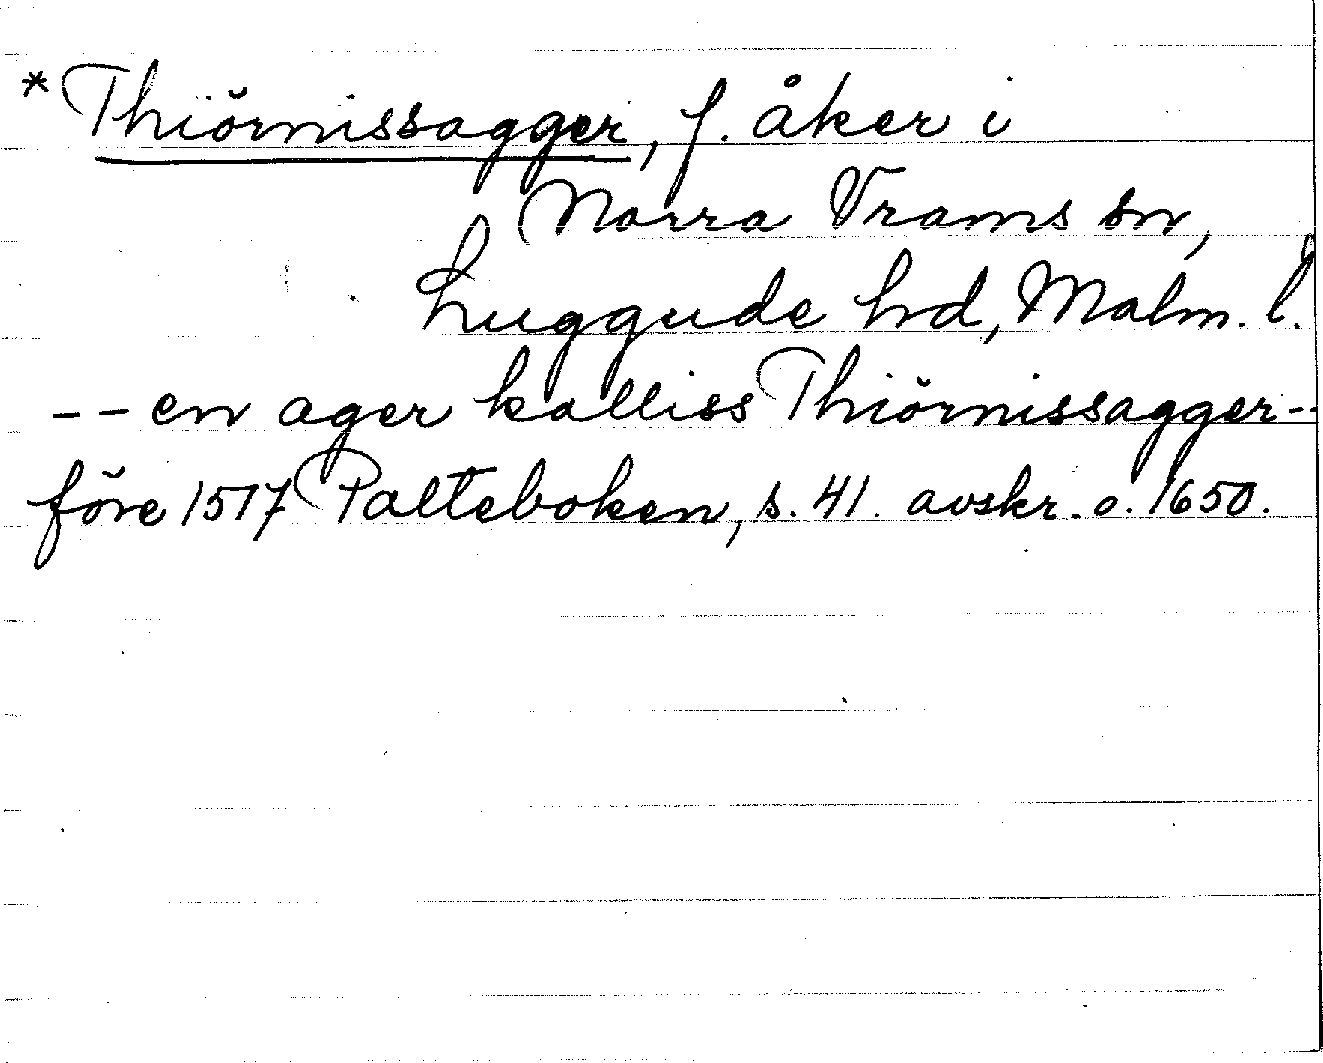 *Thiörnissagger, f. åker i
Norra Vrams sn,
Luggude hd, Malm. l.
-- en ager kalliss Thiörnissagger --
före 1517 Palteboken, s. 41. avskr. o. 1650.